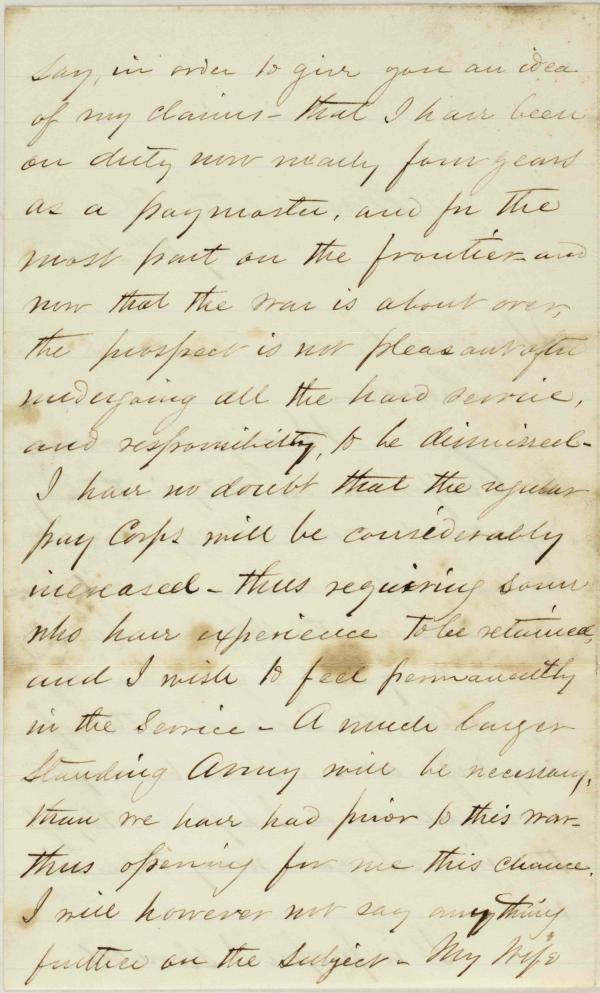 say, in order to give you an idea
of my claims - that I have been
on duty now nearly four years
as a paymaster, and for the
most part on the frontier - and
now that the war is about over,
the prospect is not pleasant after
undergoing all the hard service,
and responsibility, to be dismissed -
I have no doubt that the regular
pay Corps will be considerably
increased - thus requiring some
who have experience to be retained,
and I wish to feel permanently
in the Service - A much larger
Standing Army will be necessary,
than we have had prior to this war -
thus opening for me this chance.
I will however not say anything
further on the subject - My Wife